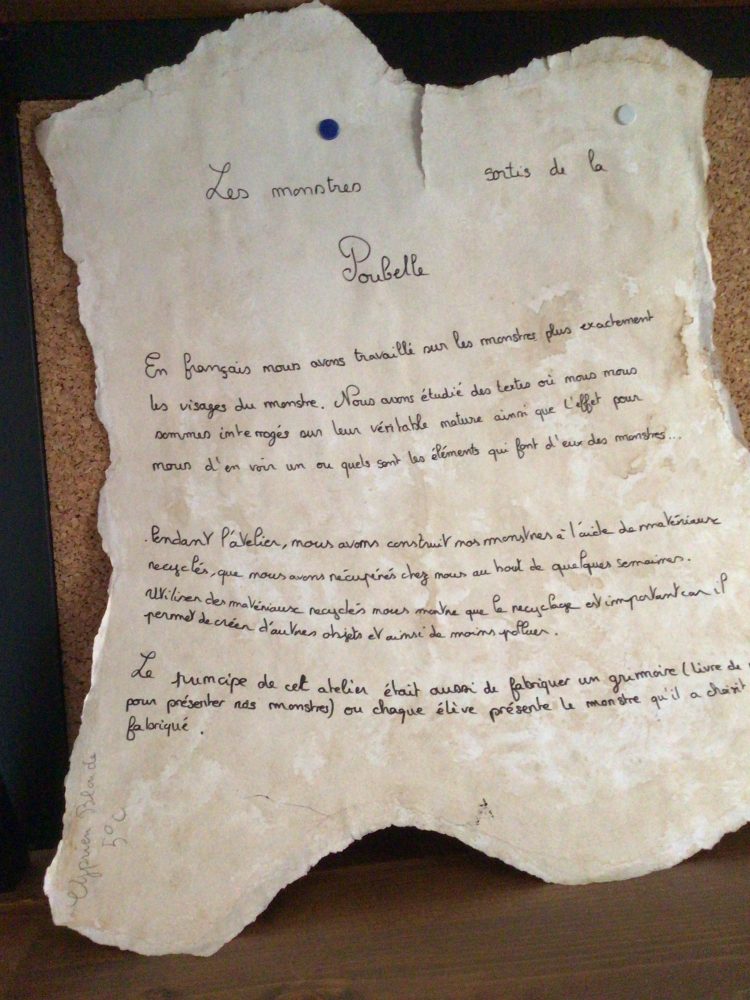 Les monstres sortis de la
Poubelle
En français nous avons travaillé sur les monstres plus exactement
les visages du monstre. Nous avons étudié des textes où nous nous
sommes interrogés sur leur véritable nature ainsi que l'effet pour
nous d'en voir un ou quels sont les éléments qui font d'eux des monstres...
Pendant l'atelier, nous avons construit nos monstres à l'aide de matériaux
recyclés, que nous avons récupérés chez nous au bout de quelques semaines.
Utiliser des matériaux recyclés nous montre que le recyclage est important car il
permet de créer d'autres objets et ainsi de moins polluer.
Le principe de cet atelier était aussi de fabriquer un grimoire (livre de
pour présenter nos monstres) ou chaque élève présente le monstre qu'il a choisit
fabriqué.
Cyprien Blonde
5°C